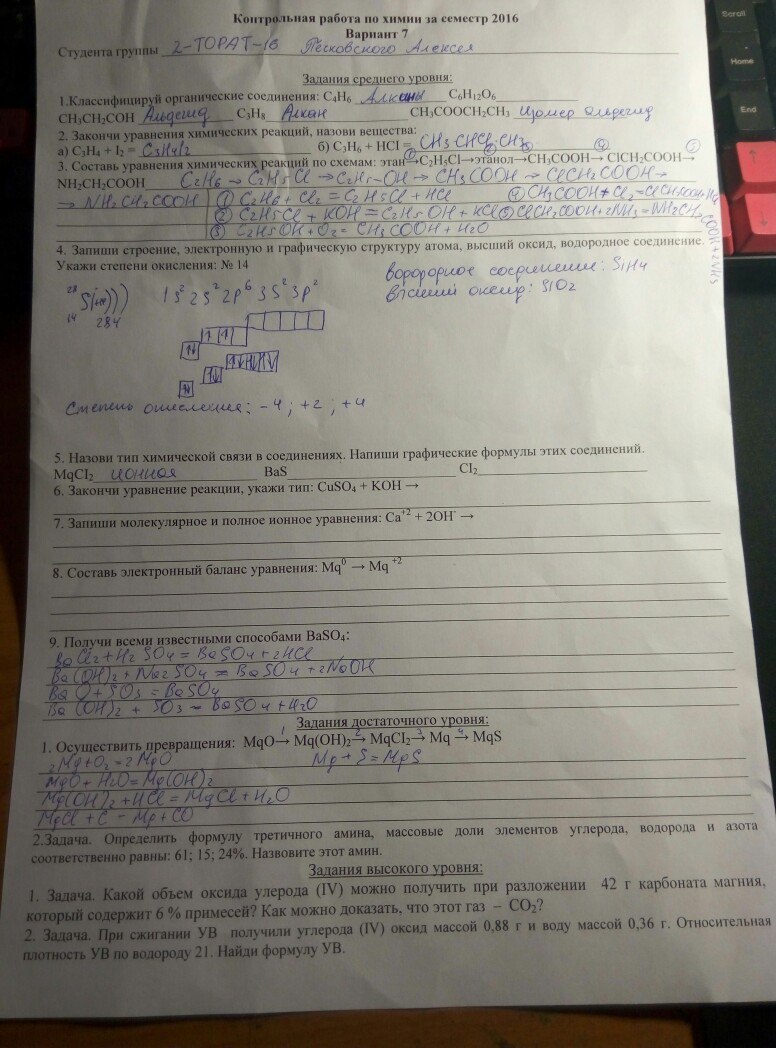 Контрольная работа по химии за семестр 2016
Вариант 7
Студента группы 2-ТОРАТ-16 Песковского Алексея
Задания среднего уровня:
1.Классифицируй органические соединения: C₄H₆ Алкины C₆H₁₂O₆
CH₃CH₂COH Альдегид C₃H₈ Алкан CH₃COOCH₂CH₃ Изомер альдегид
2. Закончи уравнения химических реакций, назови вещества:
а) C₃H₄ + I₂ = C₃H₄I₂ б) C₃H₆ + HCl = CH₃ CHCl CH₃
3. Составь уравнения химических реакций по схемам: этан→C₂H₅Cl→этанол→CH₃COOH→ ClCH₂COOH→
NH₂CH₂COOH C₂H₆ → C₂H₅Cl → C₂H₅-OH → CH₃COOH → ClCH₂COOH →
→ NH₂CH₂COOH ① C₂H₆ + Cl₂ = C₂H₅Cl + HCl ④ CH₃COOH + Cl₂ = ClCH₂COOH + HCl
② C₂H₅Cl + KOH = C₂H₅OH + KCl ⑤ ClCH₂COOH + 2NH₃ = NH₂CH₂COOH +
③ C₂H₅OH + O₂ = CH₃COOH + H₂O
4. Запиши строение, электронную и графическую структуру атома, высший оксид, водородное соединение.
Укажи степени окисления: № 14
водородное соединение: SiH₄
высший оксид: SiO₂
²⁸ Si ))) 1s² 2s² 2p⁶ 3s² 3p²
14 284
Степень окисления: -4; +2; +4
5. Назови тип химической связи в соединениях. Напиши графические формулы этих соединений.
MqCl₂ ионная BaS Cl₂
6. Закончи уравнение реакции, укажи тип: CuSO₄ + KOH →
7. Запиши молекулярное и полное ионное уравнения: Ca⁺² + 2OH⁻ →
8. Составь электронный баланс уравнения: Mq⁰ → Mq⁺²
9. Получи всеми известными способами BaSO₄:
BaCl₂ + H₂SO₄ = BaSO₄ + 2HCl
Ba(OH)₂ + Na₂SO₄ = BaSO₄ + 2NaOH
BaO + SO₃ = BaSO₄
Ba(OH)₂ + SO₃ = BaSO₄ + H₂O
Задания достаточного уровня:
1. Осуществить превращения: MqO →¹ Mq(OH)₂ →² MqCl₂ →³ Mq →⁴ MqS
2Mg + O₂ = 2MgO Mg + S = MgS
MgO + H₂O = Mg(OH)₂
Mg(OH)₂ + HCl = MgCl + H₂O
MgCl + C = Mg + CO
2.Задача. Определить формулу третичного амина, массовые доли элементов углерода, водорода и азота
соответственно равны: 61; 15; 24%. Назвовите этот амин.
Задания высокого уровня:
1. Задача. Какой объем оксида улерода (IV) можно получить при разложении 42 г карбоната магния,
который содержит 6 % примесей? Как можно доказать, что этот газ – CO₂?
2. Задача. При сжигании УВ получили углерода (IV) оксид массой 0,88 г и воду массой 0,36 г. Относительная
плотность УВ по водороду 21. Найди формулу УВ.
Scroll
Home
End